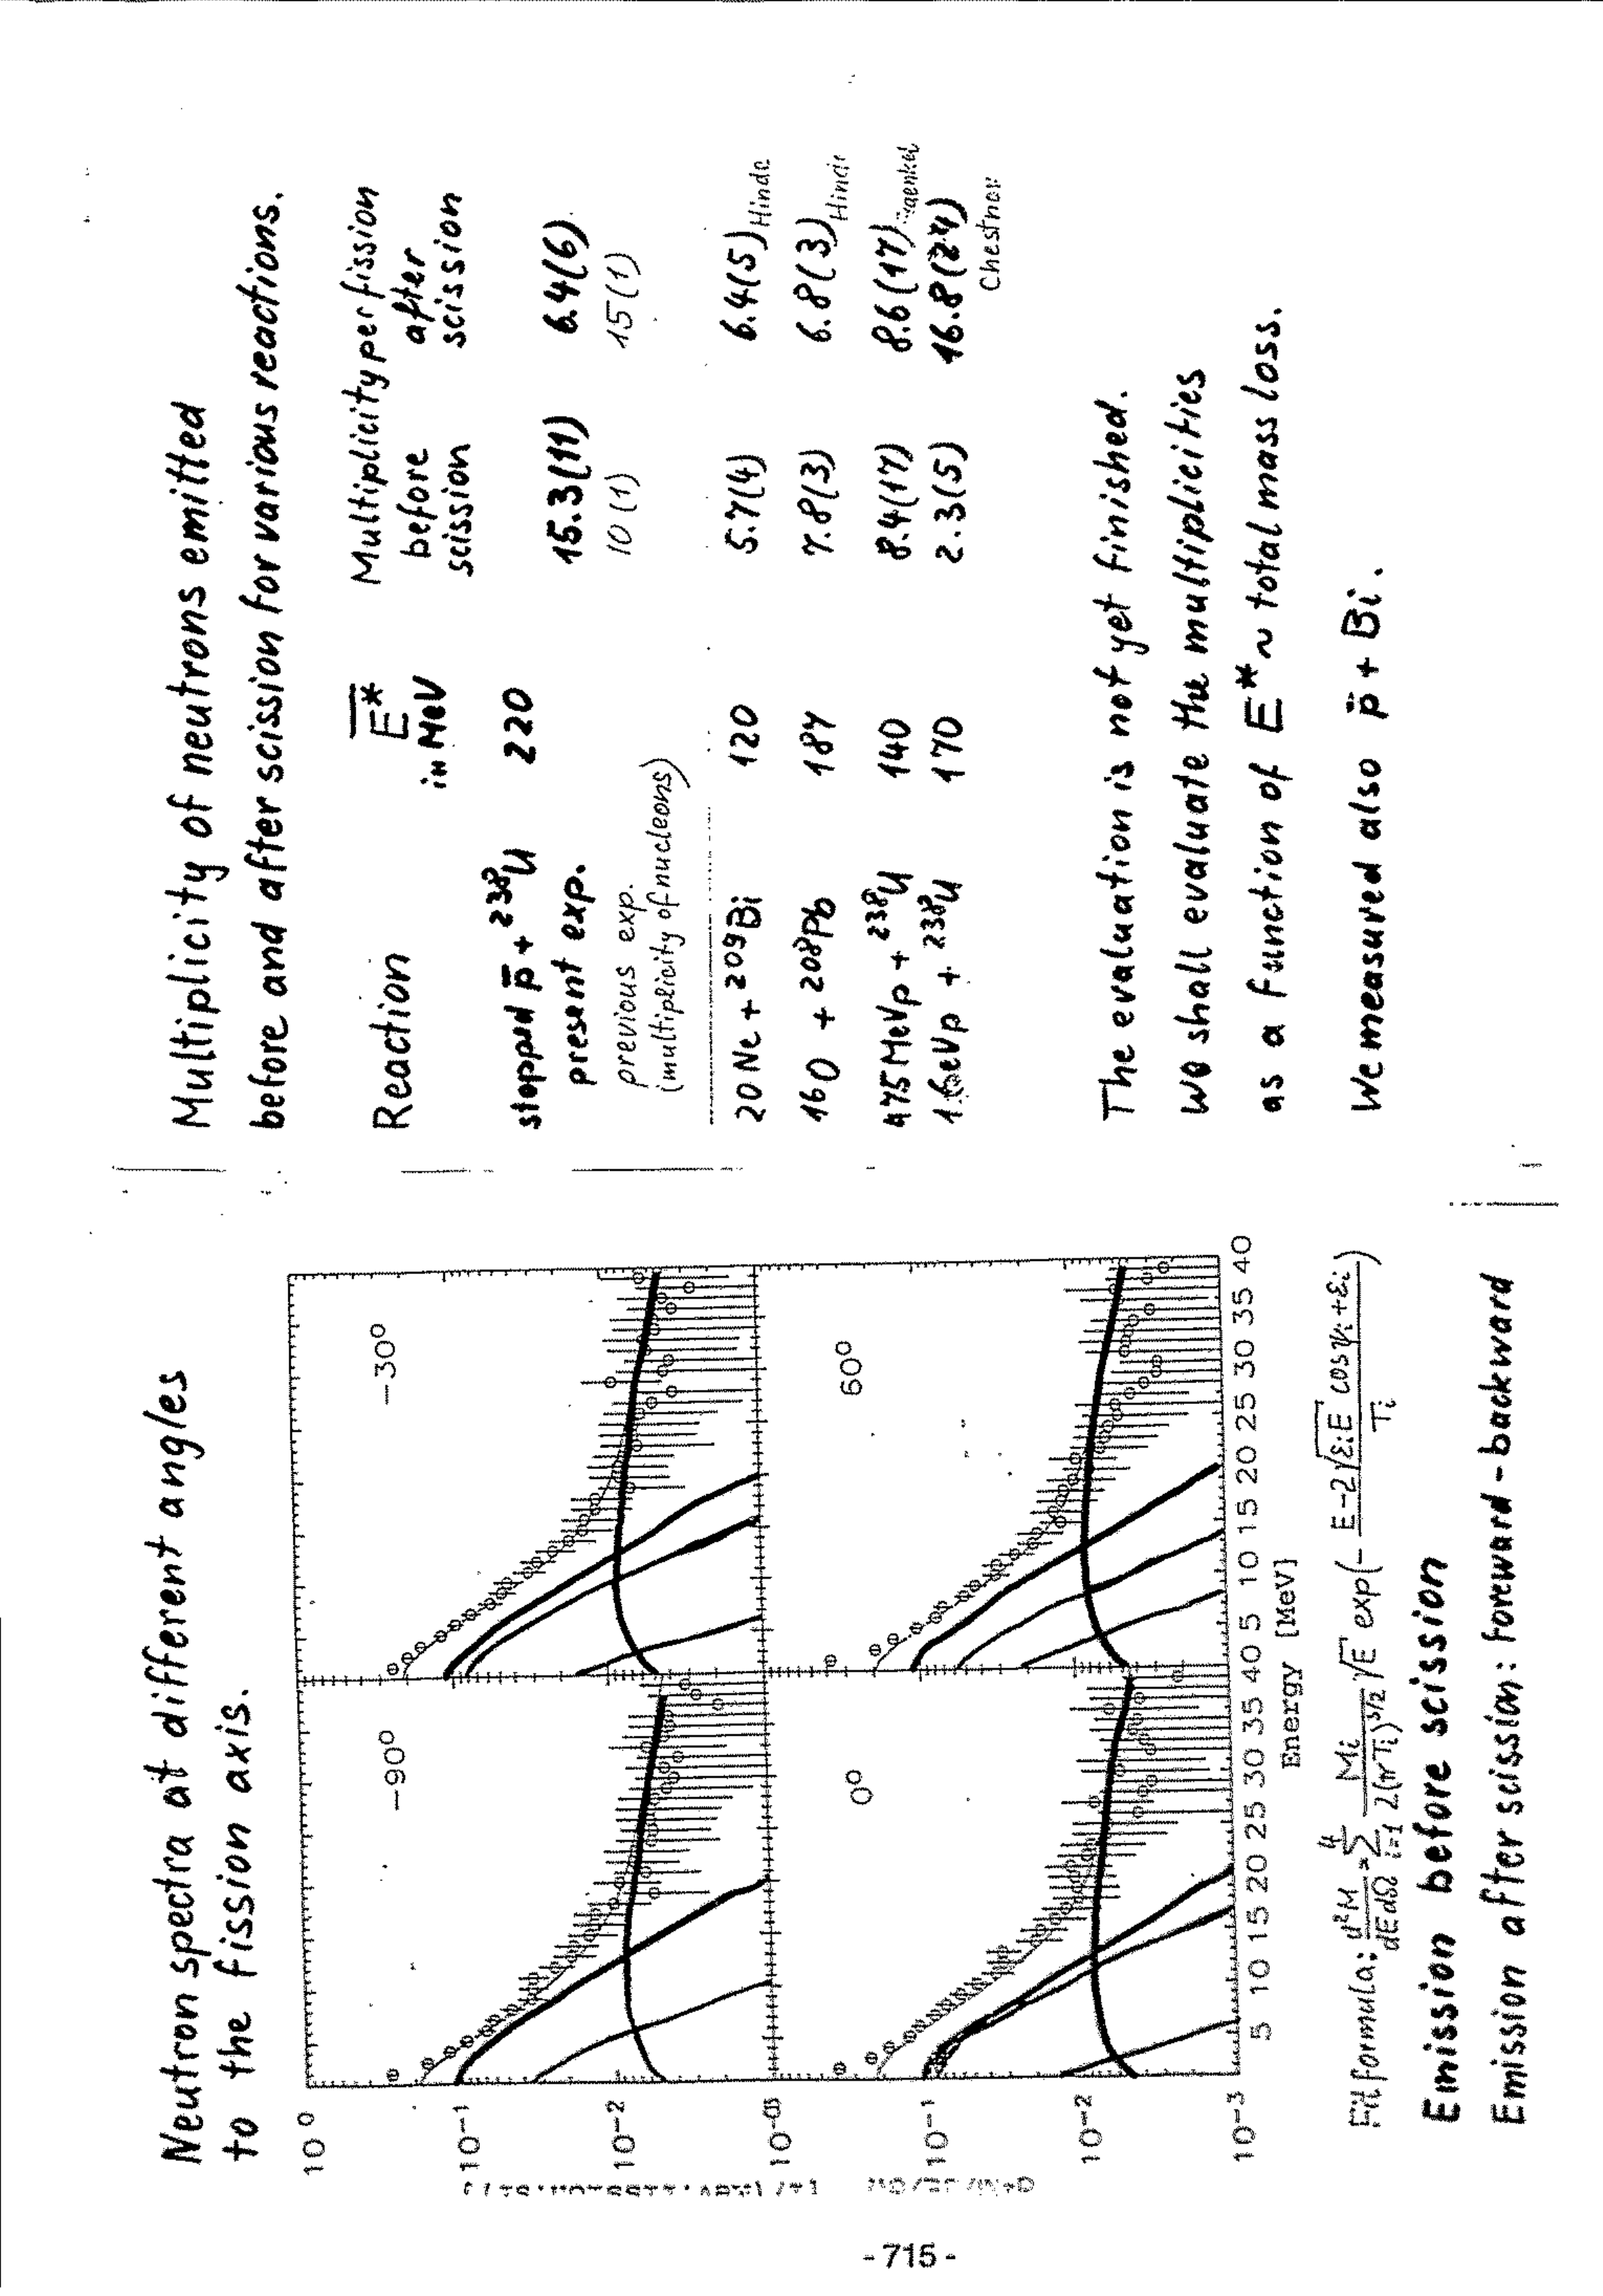 Neutron spectra at different angles
to the fission axis.
-90° -30°
0° 60°
10 0
10-1
10-2
10-1
10-2
10-3
5 10 15 20 25 30 35 40 5 10 15 20 25 30 35 40
Energy [MeV]
Fit formula: d²M/dEdΩ = Σ i=1 4 Mi/2(πTi)^3/2 √E exp(- E-2√εiE cosψi+εi / Ti)
Emission before scission
Emission after scission: foreward-backward
Multiplicity of neutrons emitted
before and after scission for various reactions.
Reaction E* in MeV Multiplicity per fission
before scission after scission
stopped p̄ + 238U 220
present exp. 15.3(11) 6.4(6)
previous exp. 10(1) 15(1)
(multiplicity of nucleons)
20Ne + 209Bi 120 5.7(4) 6.4(5) Hinde
16O + 208Pb 187 7.8(3) 6.8(3) Hinde
475MeVp + 238U 140 8.4(17) 8.6(17)
1GeVp + 238U 170 2.3(5) 16.8(24)
Chestnov
The evaluation is not yet finished.
We shall evaluate the multiplicities
as a function of E* ~ total mass loss.
We measured also p̄ + Bi.
- 715 -